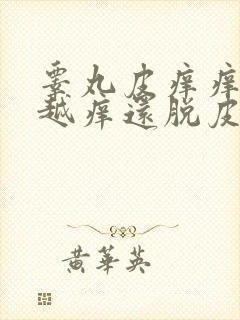 睾丸皮痒痒
越痒還脱皮
黄華英